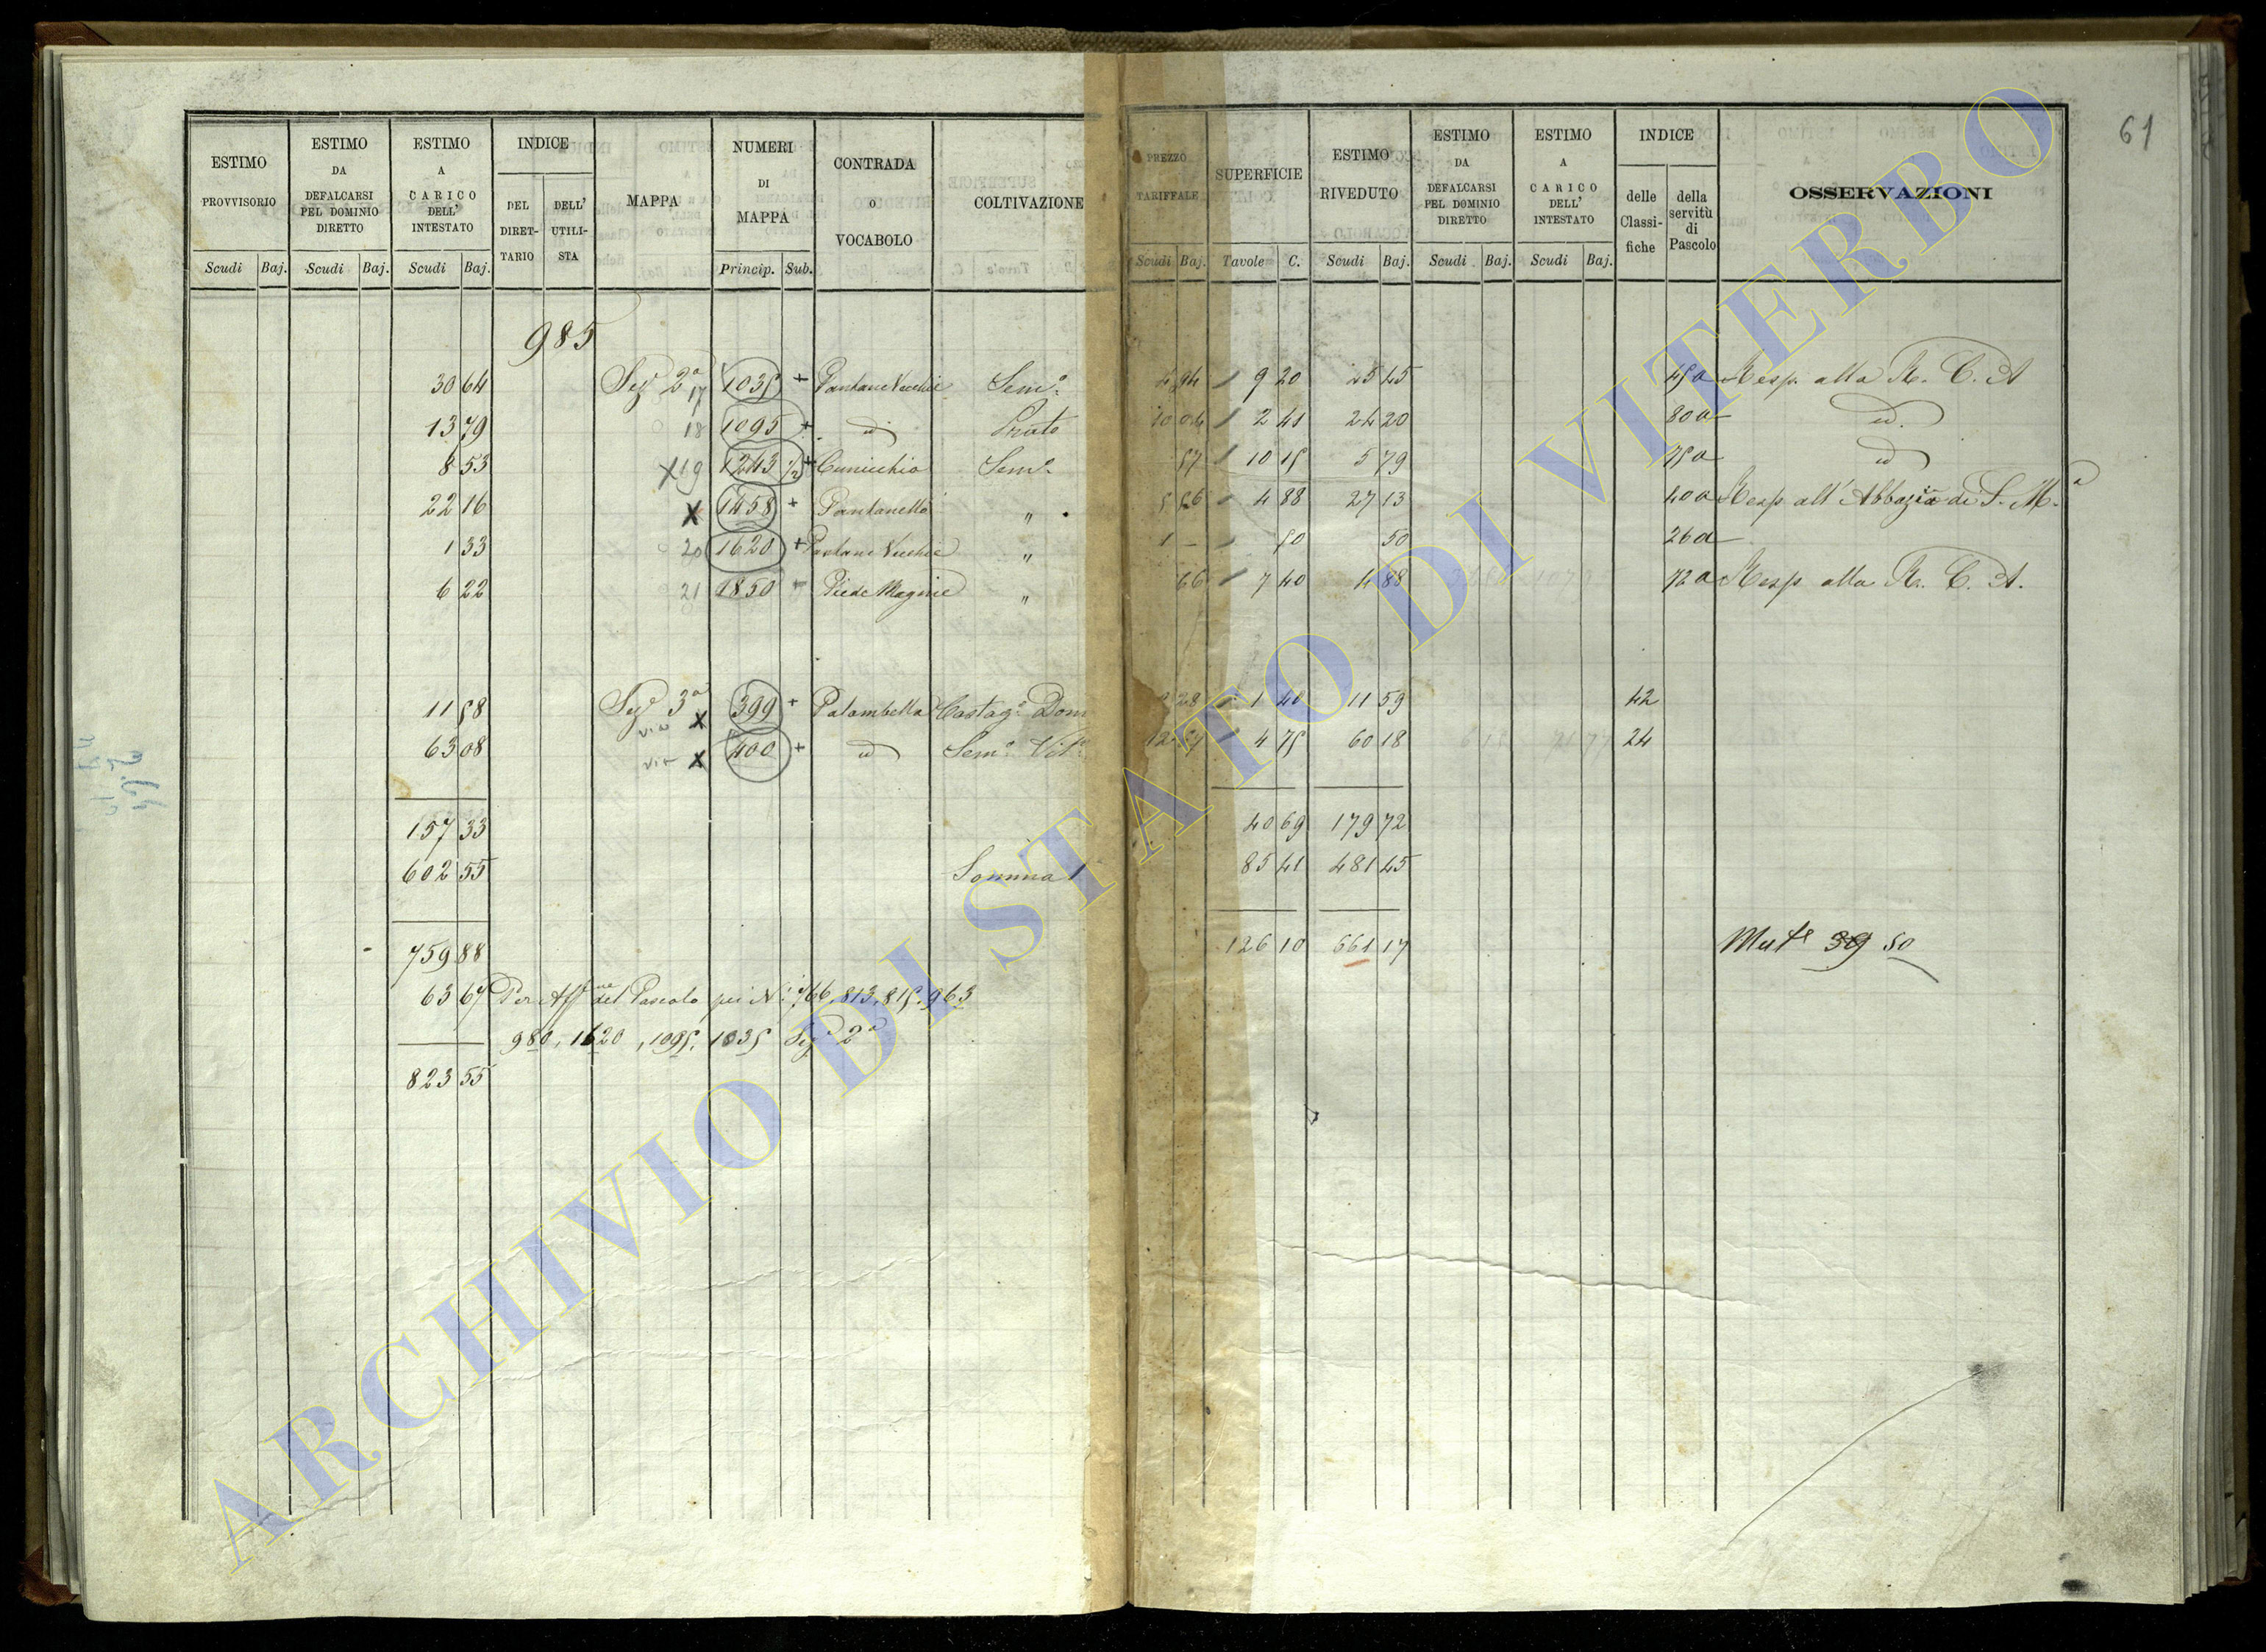 61
ESTIMO PROVVISORIO
ESTIMO DA DEFALCARSI PEL DOMINIO DIRETTO
ESTIMO A CARICO DELL' INTESTATO
INDICE
DEL DIRET-TARIO
DELL' UTILI-STA
MAPPA
NUMERI DI MAPPA
CONTRADA O VOCABOLO
COLTIVAZIONE
PREZZO TARIFFALE
SUPERFICIE
ESTIMO RIVEDUTO
ESTIMO DA DEFALCARSI PEL DOMINIO DIRETTO
ESTIMO A CARICO DELL' INTESTATO
INDICE
delle Classi-fiche
della servitù di Pascolo
OSSERVAZIONI
Scudi Baj. Scudi Baj. Scudi Baj. Princip. Sub. Scudi Baj. Tavole C. Scudi Baj. Scudi Baj. Scudi Baj.
985
30 64 Sez. 2a 17 1035 + Pantane Vecchie Sem.o 4 94 9 20 45 45 45a Resp. alla R. C. A
13 79 18 1095 + id Prato 10 04 2 41 24 20 80a id.
8 53 X 19 1243 1/2 + Cunicchio Sem.o 57 10 15 5 79 75a id
22 16 X 1458 + Pantanello " 5 56 4 88 27 13 40a Resp all' Abbazia di S. M.a
1 33 20 1620 + Pantane Vecchie " 1 — 50 50 26a
6 22 21 1850 Piede Magine " 66 7 40 4 88 72a Resp alla R. C. A.
11 58 Sez. 3a via X 399 + Palambella Castag.o Dom 8 28 1 40 11 59 42
63 08 via X 400 + id Sem.o Vit.o 12 67 4 75 60 18 24
157 33 40 69 179 72
602 55 Somma 1 85 41 481 45
759 88 126 10 661 17 Mut.e 39 50
63 67 Per Aff.ne del Pascolo pei N.i 766, 813, 815, 963
980, 1620, 1095, 1035 Sez. 2a
823 55
ARCHIVIO DI STATO DI VITERBO